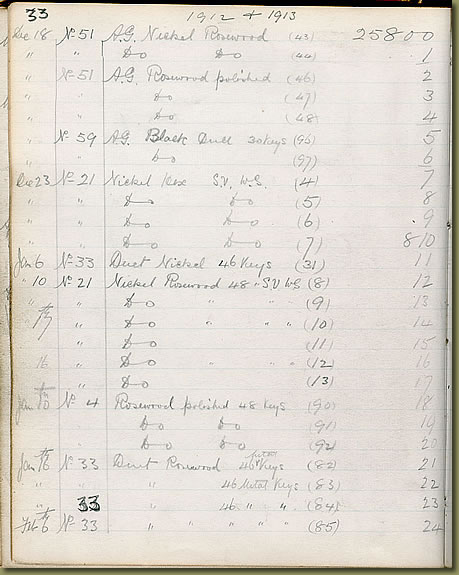 33 1912 + 1913
Dec 18 No 51 A.G. Nickel Rosewood (43) 25800
" " Do Do (44) 1
" No 51 A.G. Rosewood polished (46) 2
" " Do (47) 3
" " Do (48) 4
" No 59 A.G. Black Duet 30 Keys (96) 5
" " Do (97) 6
Dec 23 No 21 Nickel S.V. W.S. (4) 7
" " Do Do (5) 8
" " Do Do (6) 9
" " Do Do (7) 810
Jan 6 No 33 Duet Nickel 46 Keys (31) 11
" 10 No 21 Nickel Rosewood 48 " S.V W.S (8) 12
" " Do " " (9) 13
17 " Do " " " (10) 14
" " Do (11) 15
16 " Do " " " (12) 16
" " Do (13) 17
Jan 10 No 4 Rosewood polished 48 Keys (90) 18
Do Do (91) 19
Do Do (92) 20
Jan 16 No 33 Duet Rosewood 46 metal Keys (82) 21
" " " 46 Metal Keys (83) 22
33 " 46 " " (84) 23
Feb 6 No 33 " " " " " (85) 24